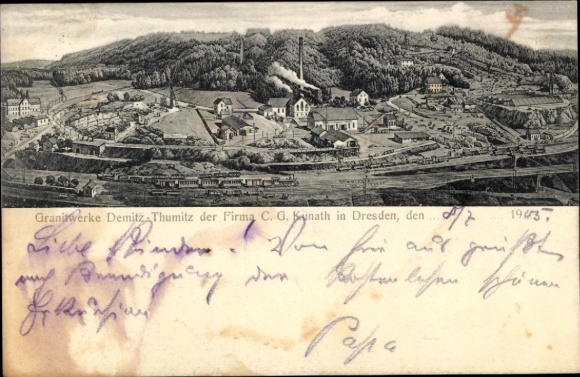 Granitwerke Demitz-Thumitz der Firma C. G. Kunath in Dresden, den 8/7 1905.
Liebe Kinder. Von hier aus grüßt
nach Beendigung der schönen
Papa